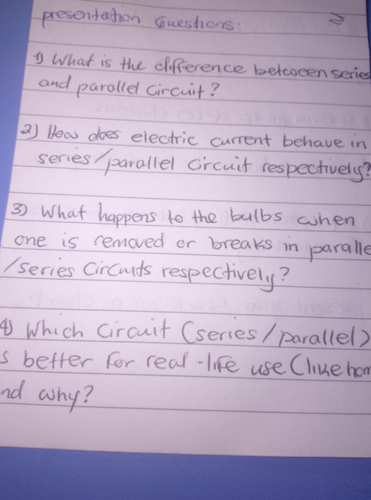 presentation Questions:
1) What is the difference between series
and parallel circuit?
2) How does electric current behave in
series/parallel circuit respectively?
3) What happens to the bulbs when
one is removed or breaks in paralle
/series circuits respectively?
4) Which circuit (series/parallel)
s better for real-life use (like hom
nd why?